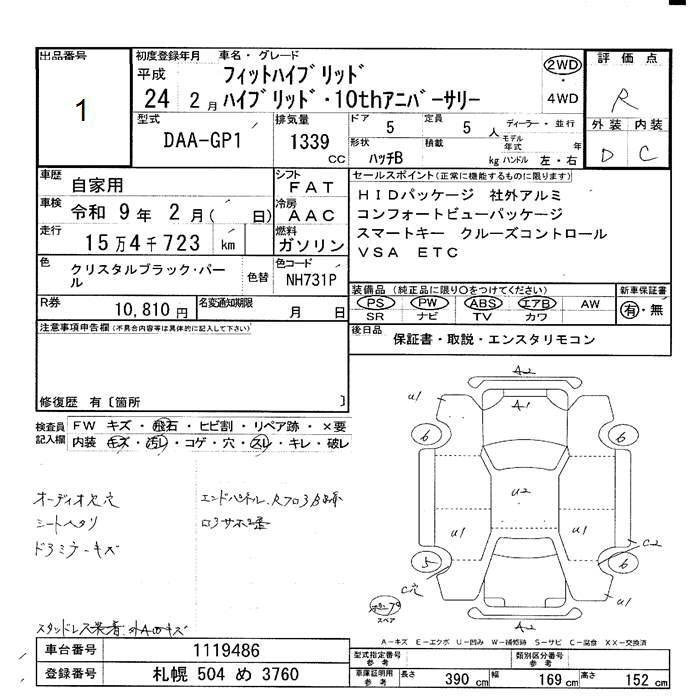 出品番号
1
初度登録年月 車名・グレード
平成
24 2月
フィットハイブリッド
ハイブリッド・10thアニバーサリー
2WD
・
4WD
評価点
R
外装 内装
D C
型式
DAA-GP1
排気量
1339
CC
ドア
5
定員
5 人
ディーラー・並行
形状
ハッチB
積載
kg
モデル年式
年
ハンドル 左・右
車歴
自家用
シフト
FAT
車検
令和 9年 2月( 日)
冷房
AAC
走行
15万4千723 km
燃料
ガソリン
色
クリスタルブラック・パール
色替
色コード
NH731P
R券
10,810円
名変通知期限
月 日
セールスポイント(正常に機能するものに限ります)
HIDパッケージ 社外アルミ
コンフォートビューパッケージ
スマートキー クルーズコントロール
VSA ETC
装備品(純正品に限り○をつけてください)
PS PW ABS エアB AW
SR ナビ TV カワ
新車保証書
有・無
後日品
保証書・取説・エンスタリモコン
注意事項申告欄(不具合内容等は具体的に記入して下さい)
修復歴 有〔箇所 〕
検査員記入欄
FW キズ・飛石・ヒビ割・リペア跡・×要
内装 キズ・汚レ・コゲ・穴・スレ・キレ・破レ
オーディオ欠穴
シートヘタリ
ドラミラーキズ
エンドパネル
A2
A1
u1
6
6
u2
u1
u1
C2
5
6
C穴
u1
スペア
A2
A-キズ E-エクボ U-凹み W-補修跡 S-サビ C-腐食 XX-交換済
車台番号
1119486
登録番号
札幌 504 め 3760
型式指定番号
参考
類別区分番号
参考
車庫証明用
参考
長さ 390 cm
幅 169 cm
高さ 152 cm